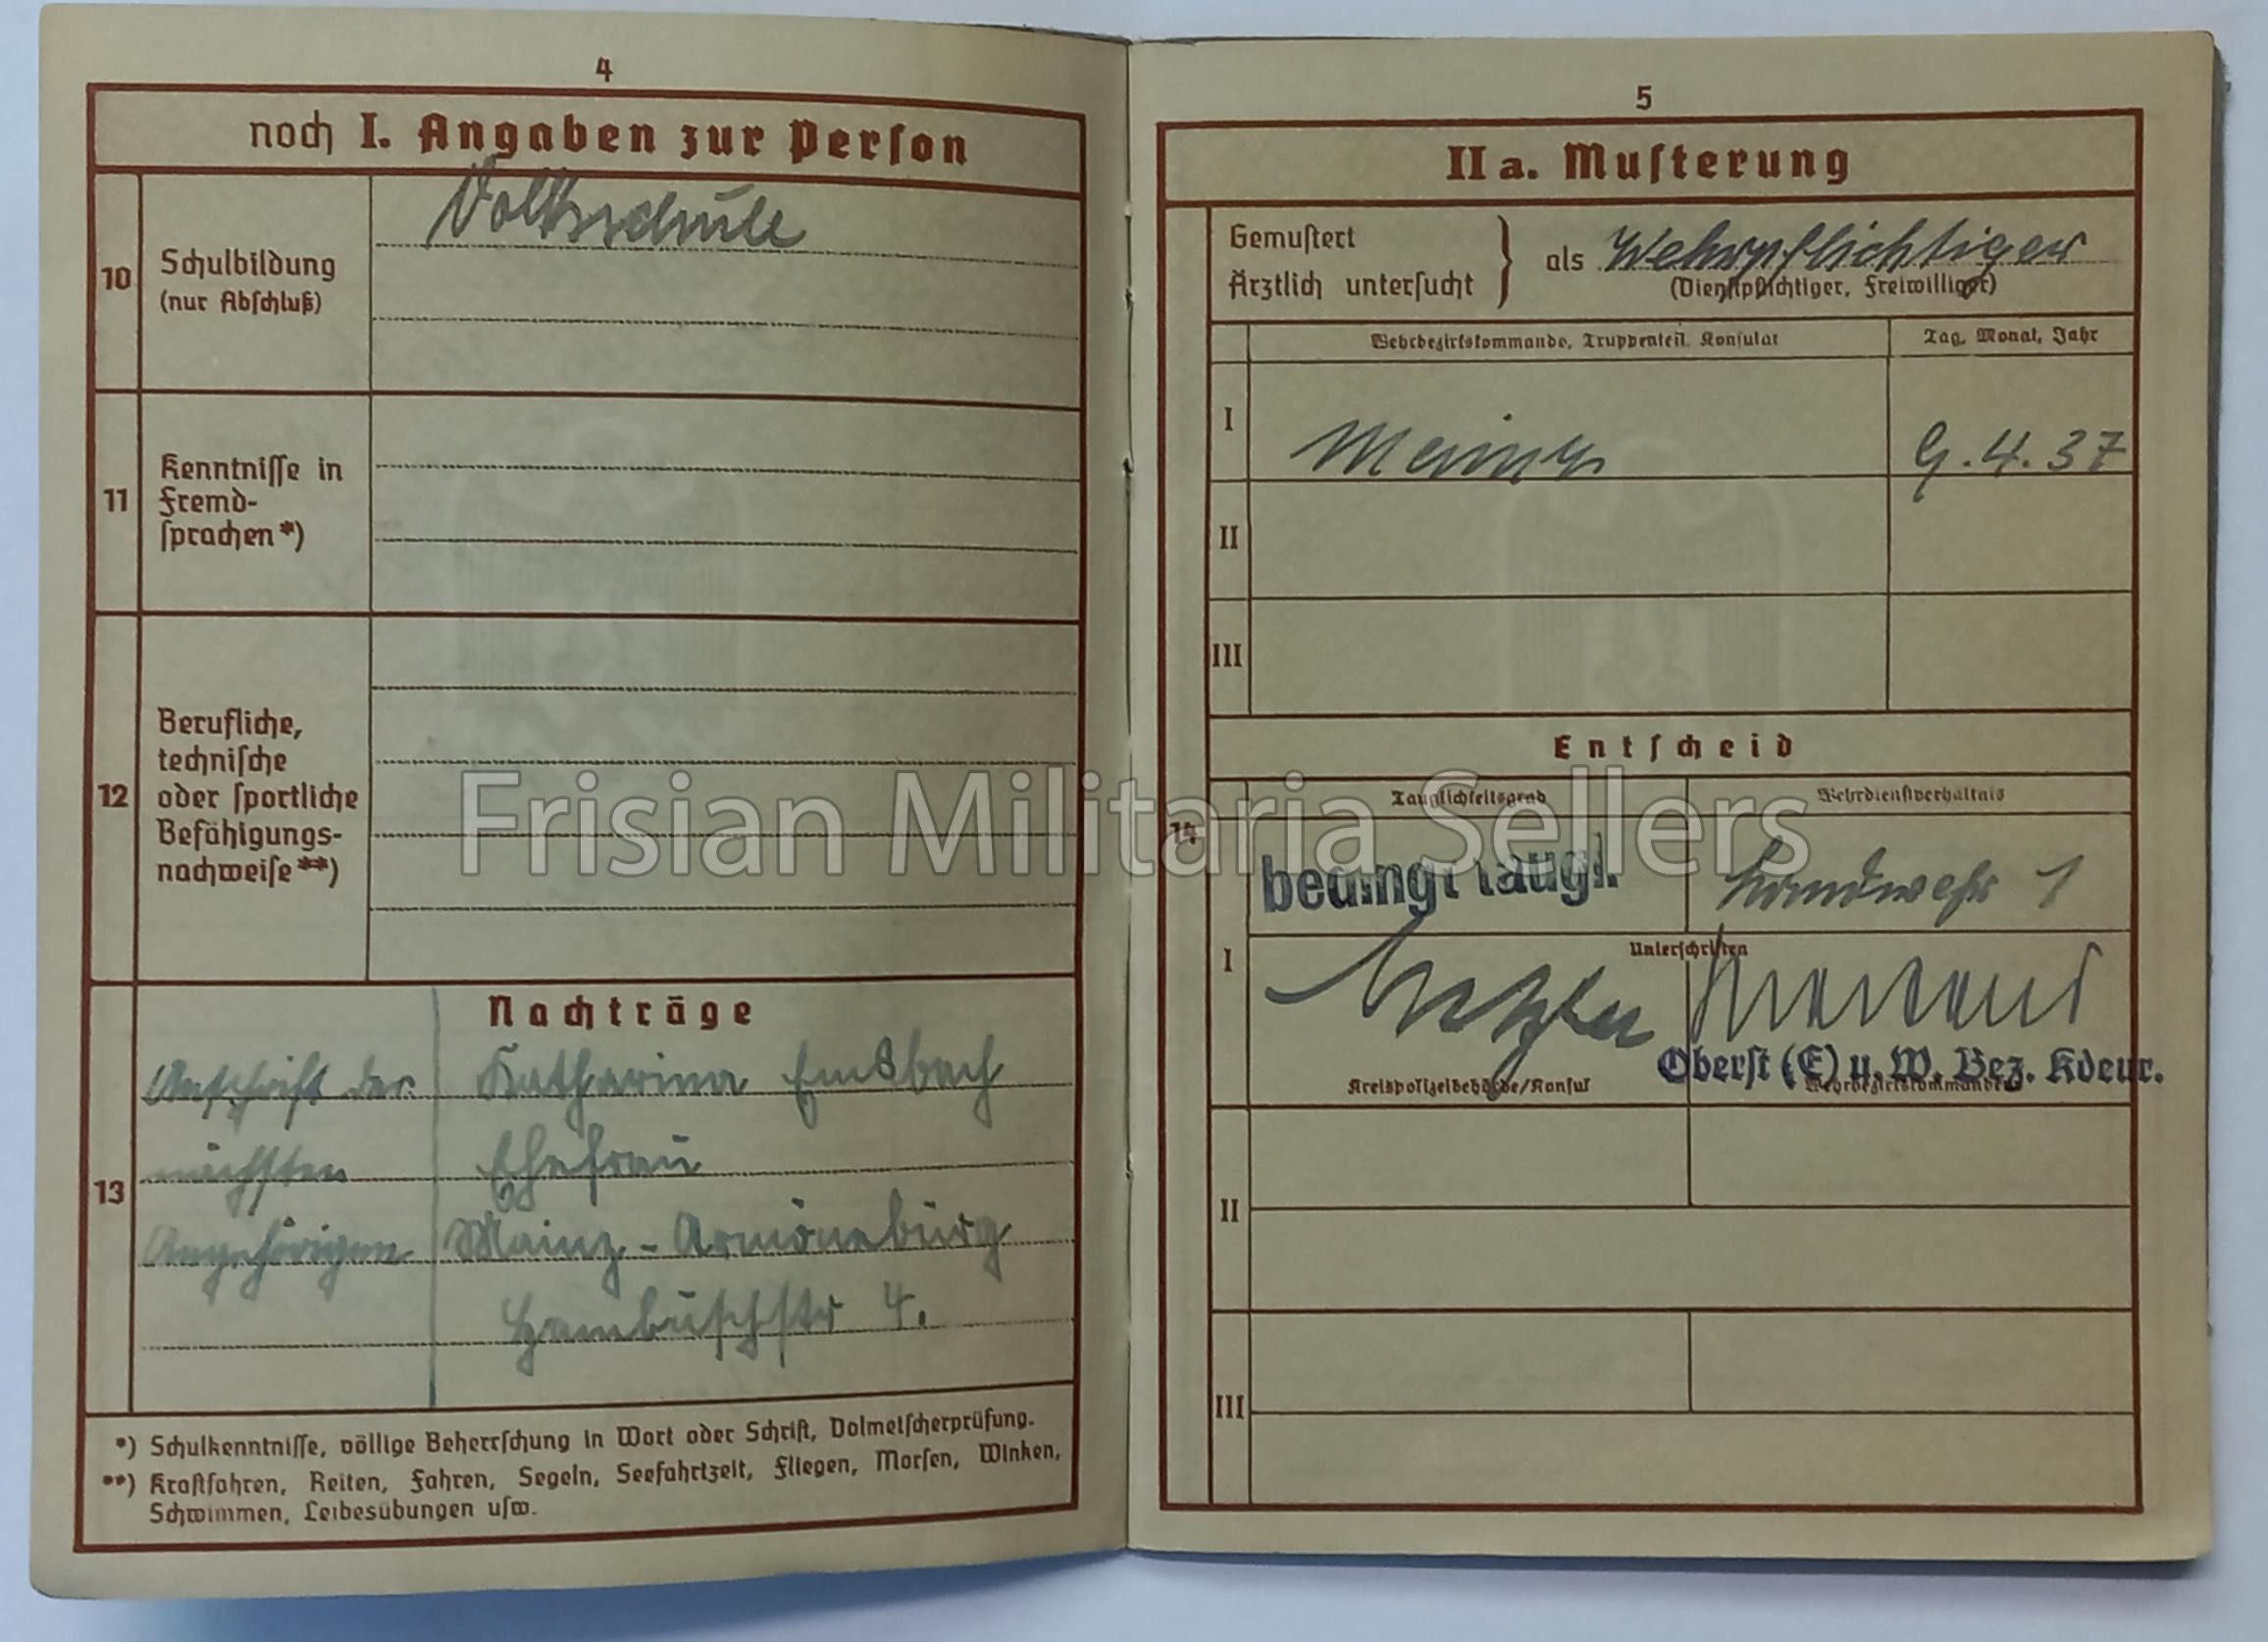 4
noch I. Angaben zur Person
10
Schulbildung
(nur Abschluß)
Volksschule
11
Kenntnisse in
Fremd-
sprachen *)
12
Berufliche,
technische
oder sportliche
Befähigungs-
nachweise **)
13
Nachträge
Anschrift der Katharina Emsbach
nächsten Ehefrau
Angehörigen Mainz - Amöneburg
str 4.
*) Schulkenntnisse, völlige Beherrschung in Wort oder Schrift, Dolmetscherprüfung.
**) Kraftfahren, Reiten, Fahren, Segeln, Seefahrtzeit, Fliegen, Morsen, Winken,
Schwimmen, Leibesübungen usw.
5
II a. Musterung
Gemustert
Ärztlich untersucht
als Wehrpflichtiger
(Dienstpflichtiger, Freiwilliger)
Wehrbezirkskommando, Truppenteil, Konsulat
Tag, Monat, Jahr
I
Mainz
9.4.37
II
III
Entscheid
14
Tauglichkeitsgrad
Wehrdienstverhältnis
bedingt taugl.
Landwehr 1
I
Unterschriften
Oberst (E) u. W. Bez. Kdeur.
Kreispolizeibehörde/Konsul
Wehrbezirkskommandeur
II
III
Frisian Militaria Sellers